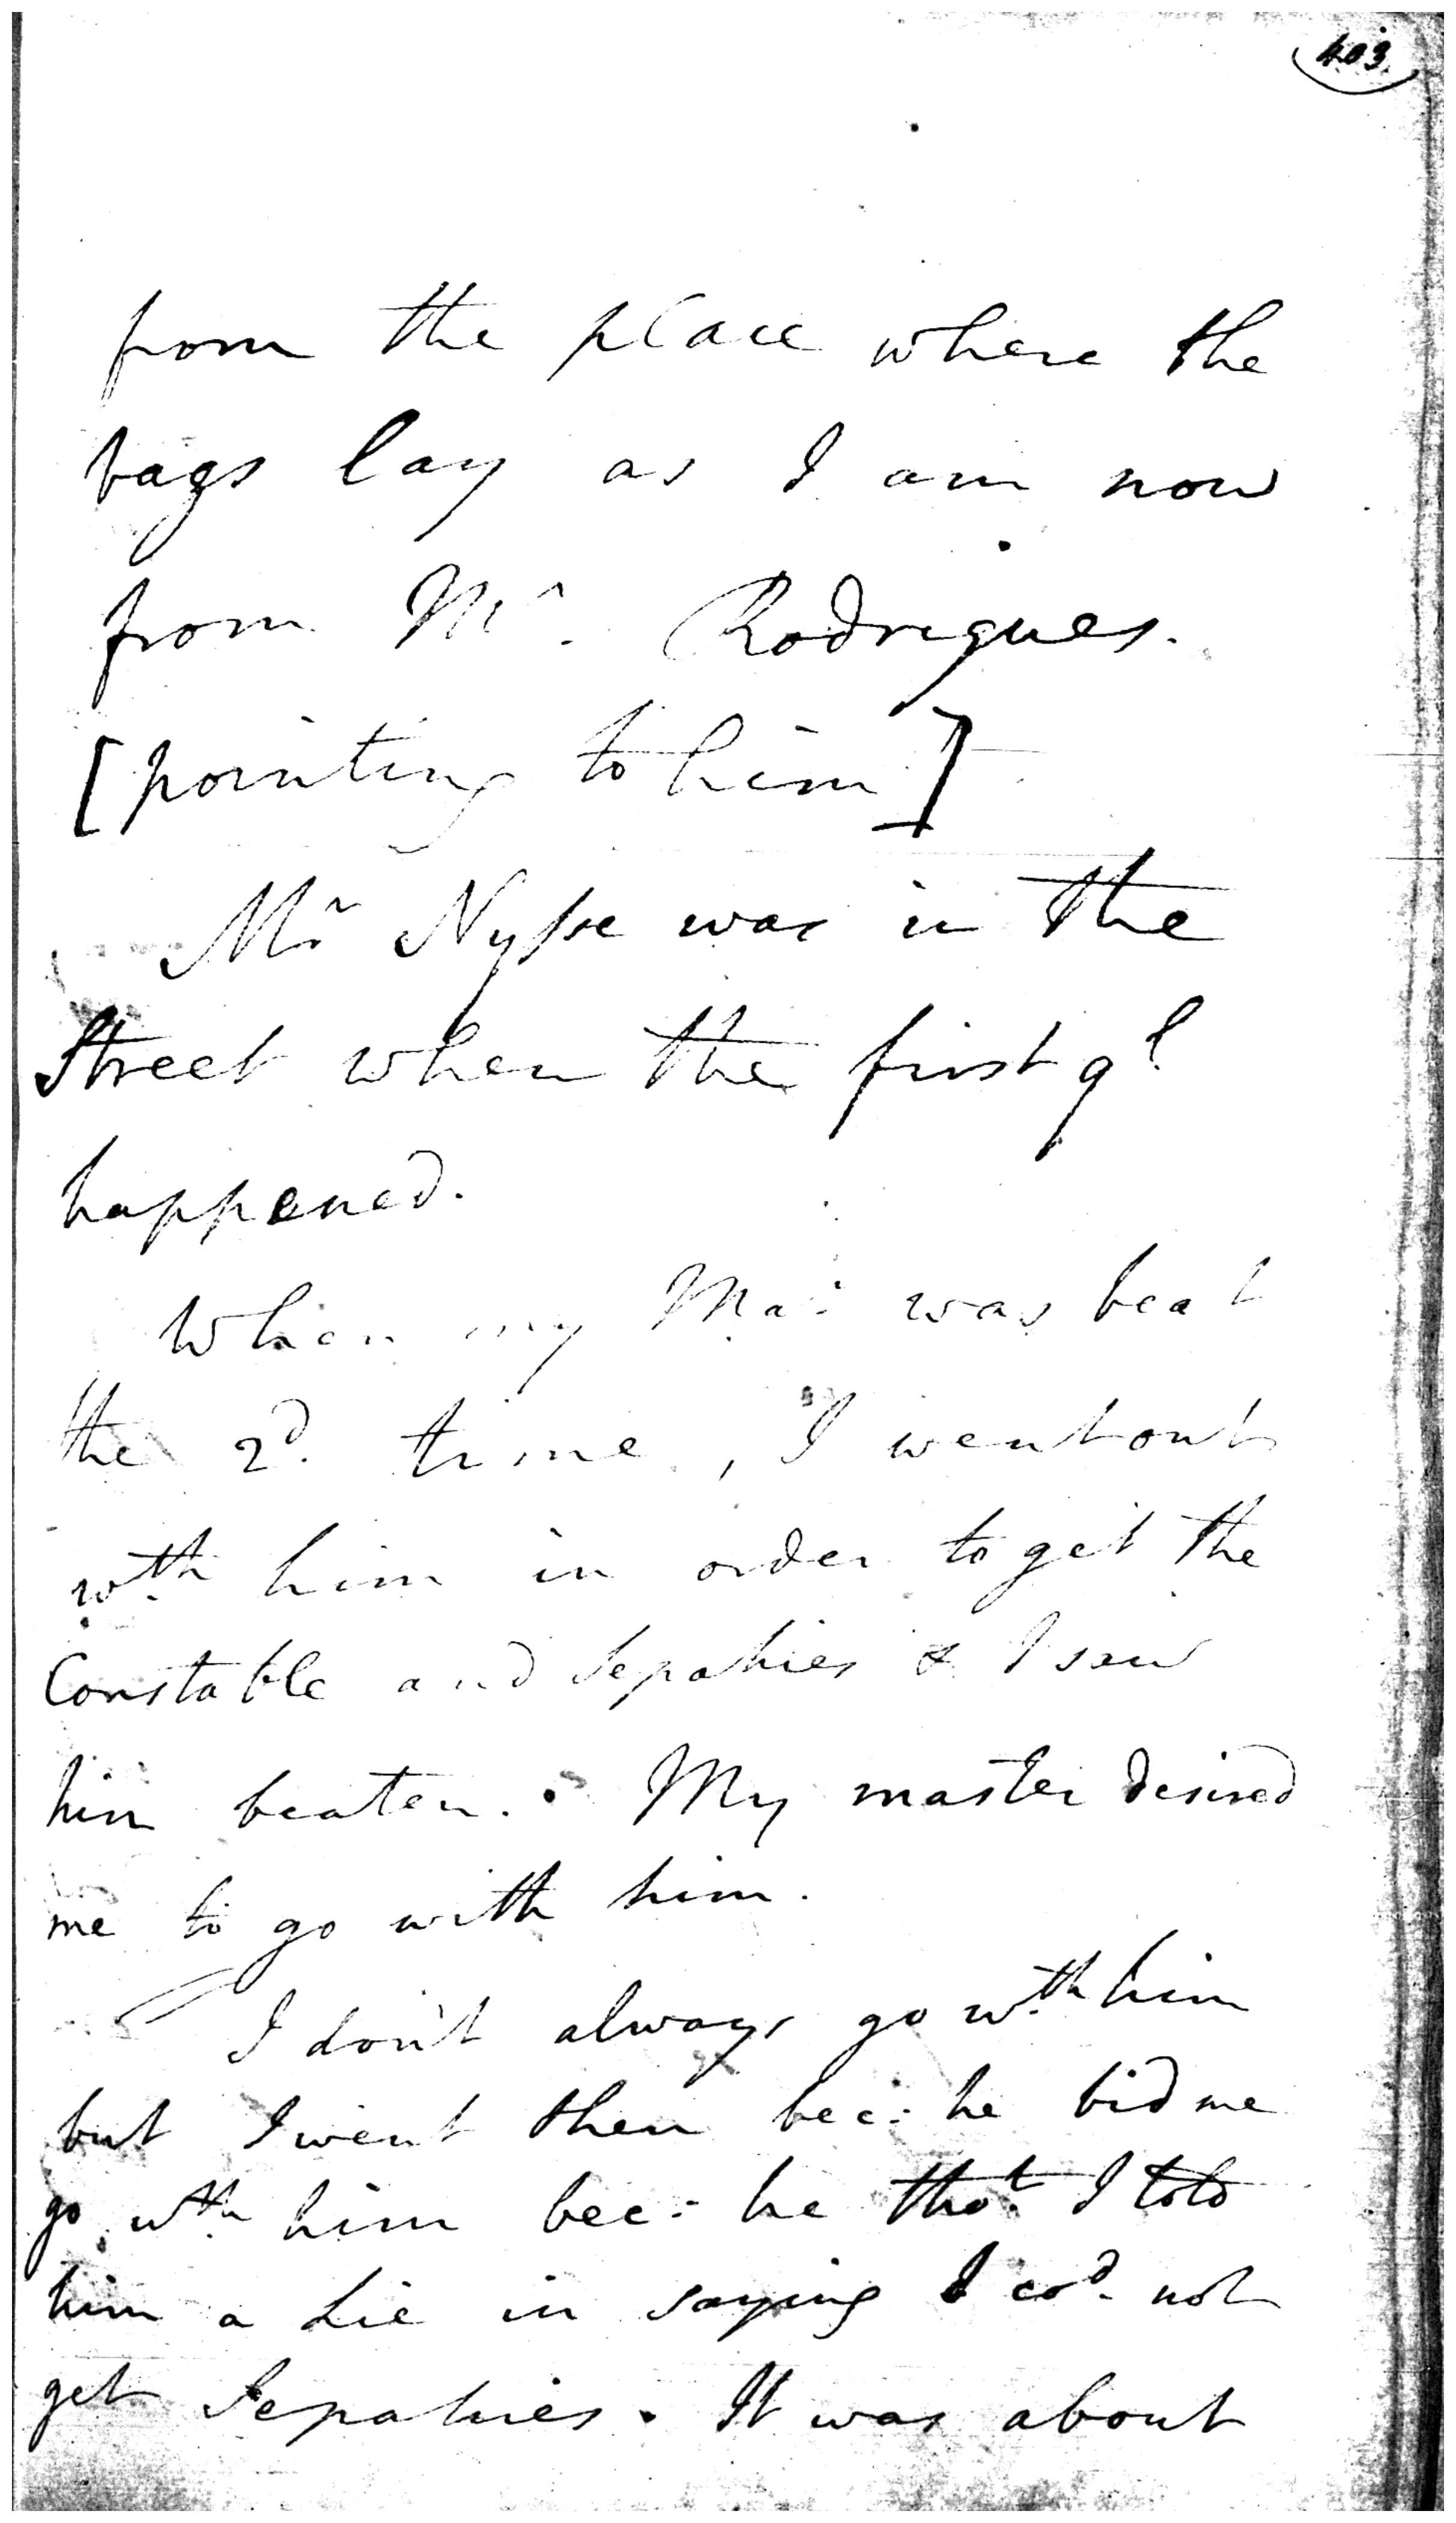 403.
from the place where the
bags lay as I am now
from Mr. Rodrigues.
[pointing to him]
Mr Nyse was in the
Street when the first ql
happened.
When my Mar: was beat
the 2d. time, I went out
wth him in order to get the
Constable and Sepahies & I saw
him beaten. My master desired
me to go with him.
I don't always go wth him
but I went then bec: he bid me
go wth him bec: he thot I told
him a Lie in saying I cod. not
get Sepahies. It was about